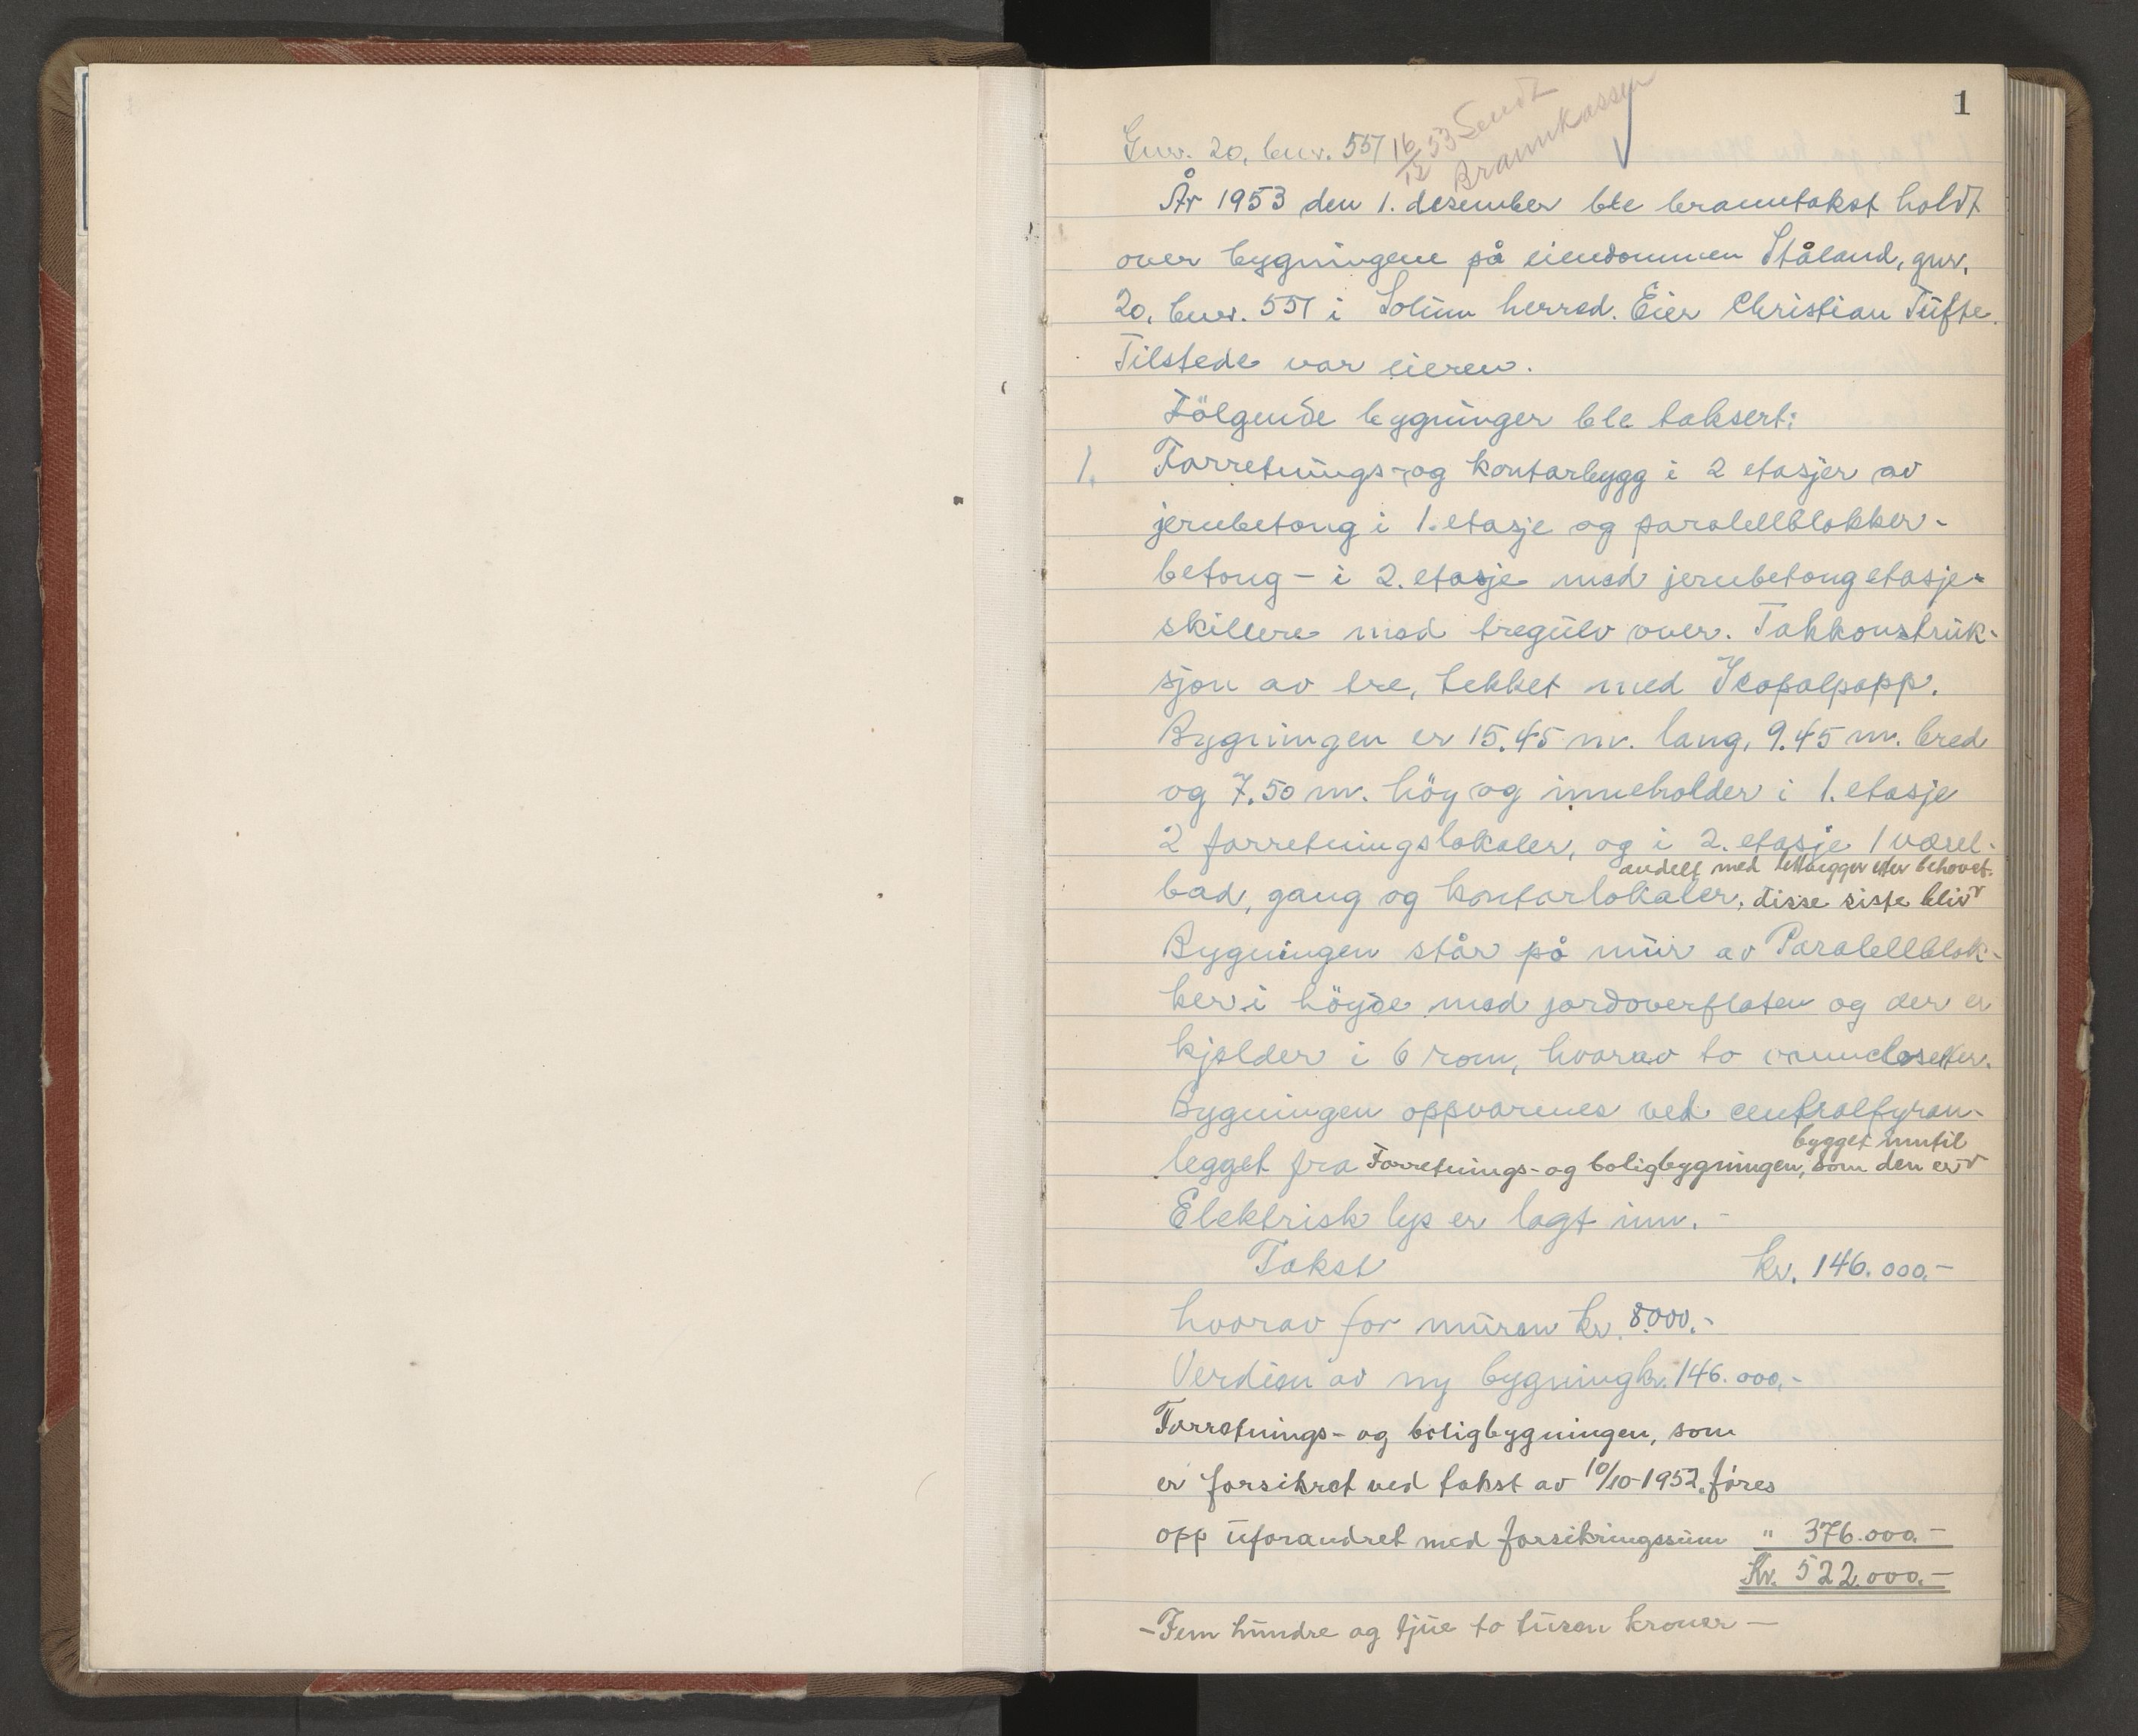 1
Gnr. 20, bnr. 551 16/12 53 Sendt
Brannkassen
År 1953 den 1. desember ble branntakst holdt
over bygningene på eiendommen Ståland, gnr.
20, bnr. 551 i Solum herred. Eier Christian Tufte.
Tilstede var eieren.
Følgende bygninger ble taksert:
1. Forretnings- og kontorbygg i 2 etasjer av
jernbetong i 1. etasje og paralellblokker-
betong - i 2. etasje med jernbetongetasje-
skillere med tregulv over. Takkonstruk-
sjon av tre, tekket med Icopalpapp.
Bygningen er 15.45 m. lang, 9.45 m. bred
og 7.50 m. höy og inneholder i 1. etasje
2 forretningslokaler, og i 2. etasje 1 værel-
andelt med lettvegger etter behovet.
bad, gang og kontorlokaler, disse siste blir
Bygningen står på mur av Paralellblok-
ker i höyde med jordoverflaten og der er
kjelder i 6 rom, hvorav to vannclosetter.
Bygningen oppvarmes ved centralfyran-
bygget inntil
legget fra Forretnings- og boligbygningen, som den er
Elektrisk lys er lagt inn. -
Takst kr. 146.000.-
hvorav for muren kr. 8.000.-
Verdien av ny bygning kr. 146.000.-
Forretnings- og boligbygningen, som
er forsikret ved takst av 10/10-1952, føres
opp uforandret med forsikringssum " 376.000.-
Kr. 522.000.-
- Fem hundre og tjue to tusen kroner -